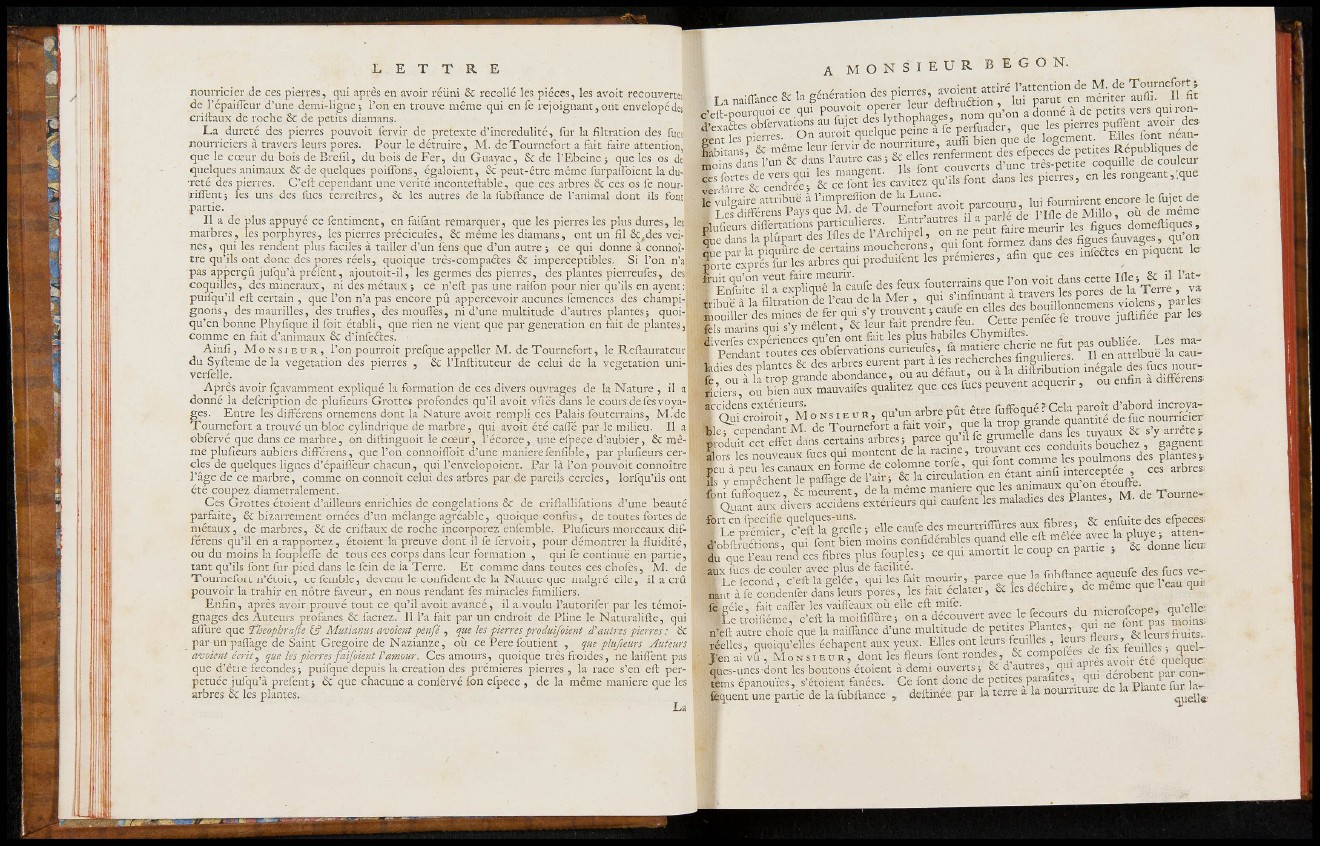 LETTRE
nourricier de ces pierres, qui après en avoir réüni & recollé les piéces, les avoit recouvertes
de l'épaiſſeur d'une demi-ligne; l'on en trouve même qui en ſe rejoignant, ont envelopé des
criſtaux de roche & de petits diamans.
La dureté des pierres pouvoit ſervir de pretexte d'incredulité, ſur la filtration des ſucs
nourriciers à travers leurs pores. Pour le détruire, M. de Tournefort a fait faire attention,
que le cœur du bois de Breſil, du bois de Fer, du Guayac, & de l'Ebeine; que les os de
quelques animaux & de quelques poiſſons, égaloient, & peut-être même ſurpaſſoient la du-
reté des pierres. C'eſt cependant une verité inconteſtable, que ces arbres & ces os ſe nour-
riſſent; les uns des ſucs terreſtres, & les autres de la ſubſtance de l'animal dont ils font
partie.
Il a de plus appuyé ce ſentiment, en faiſant remarquer, que les pierres les plus dures, les
marbres, les porphyres, les pierres précieuſes, & même les diamans, ont un fil & des vei-
nes, qui les rendent plus faciles à tailler d'un ſens que d'un autre; ce qui donne à connoî-
tre qu'ils ont donc des pores réels, quoique très-compactes & imperceptibles. Si l'on n'a
pas apperçû juſqu'à préſent, ajoutoit-il, les germes des pierres, des plantes pierreuſes, des
coquilles, des mineraux, ni des métaux; ce n'eſt pas une raiſon pour nier qu'ils en ayent:
puiſqu'il eſt certain, que l'on n'a pas encore pû appercevoir aucunes ſemences des champi-
gnons, des maurilles, des trufles, des mouſſes, ni d'une multitude d'autres plantes; quoi-
qu'en bonne Phyſique il ſoit établi, que rien ne vient que par generation en fait de plantes,
comme en fait d'animaux & d'inſectes.
Ainſi, MONSIEUR, l'on pourroit preſque appeller M. de Tournefort, le Reſtaurateur
du Syſteme de la vegetation des pierres, & l'Inſtituteur de celui de la vegetation uni-
verſelle.
Après avoir ſçavamment expliqué la formation de ces divers ouvrages de la Nature, il a
donné la deſcription de pluſieurs Grottes profondes qu'il avoit vûës dans le cours de ſes voya-
ges. Entre les différens ornemens dont la Nature avoit rempli ces Palais ſouterrains, M. de
Tournefort a trouvé un bloc cylindrique de marbre, qui avoit été caſſé par le milieu. Il a
obſervé que dans ce marbre, on diſtinguoit le cœur, l'écorce, une eſpece d'aubier, & mê-
me pluſieurs aubiers différens, que l'on connoiſſoit d'une maniere ſenſible, par pluſieurs cer-
cles de quelques lignes d'épaiſſeur chacun, qui l'envelopoient. Par là l'on pouvoit connoître
l'âge de ce marbre, comme on connoit celui des arbres par de pareils cercles, lorſqu'ils ont
été coupez diametralement.
Ces Grottes étoient d'ailleurs enrichies de congelations & de criſtalliſations d'une beauté
parfaite, & bizarrement ornées d'un mélange agréable, quoique confus, de toutes ſortes de
métaux, de marbres, & de criſtaux de roche incorporez enſemble. Pluſieurs morceaux dif-
férens qu'il en a rapportez, étoient la preuve dont il ſe ſervoit, pour démontrer la fluidité,
ou du moins la ſoupleſſe de tous ces corps dans leur formation, qui ſe continuë en partie,
tant qu'ils ſont ſur pied dans le ſein de la Terre. Et comme dans toutes ces choſes, M. de
Tournefort n'étoit, ce ſemble, devenu le confident de la Nature que malgré elle, il a crû
pouvoir la trahir en nôtre faveur, en nous rendant ſes miracles familiers.
Enfin, après avoir prouvé tout ce qu'il avoit avancé, il a voulu l'autoriſer par les témoi-
gnages des Auteurs profanes & ſacrez. Il l'a fait par un endroit de Pline le Naturaliſte, qui
aſſûre que Theophraſte & Mutianus avoient penſé, que les pierres produiſoient d'autres pierres: &
par un paſſage de Saint Gregoire de Nazianze, où ce Pere ſoutient, que pluſieurs Auteurs
avoient écrit, que les pierres faiſoient l'amour. Ces amours, quoique très froides, ne laiſſent pas
que d'être fecondes; puiſque depuis la creation des prémieres pierres, la race s'en eſt per-
petuée juſqu'à preſent; & que chacune a conſervé ſon eſpece, de la même maniere que les
arbres & les plantes.
La
A MONSIEUR BEGON.
La naiſſance & la génération des pierres, avoient attiré l'attention de M. de Tournefort;
c'eſt-pourquoi ce qui pouvoit operer leur deſtruction, lui parut en mériter auſſi. Il fit
d'exactes obſervations au ſujet des lythophages, nom qu'on a donné à de petits vers qui ron-
gent les pierres. On auroit quelque peine à ſe perſuader, que les pierres puſſent avoir des
habitans, & même leur ſervir de nourriture, auſſi bien que de logement. Elles ſont néan-
moins dans l'un & dans l'autre cas; & elles renferment des eſpeces de petites Républiques de
ces ſortes de vers qui les mangent. Ils ſont couverts d'une très-petite coquille de couleur
verdâtre & cendrée; & ce ſont les cavitez qu'ils font dans les pierres, en les rongeant, que
le vulgaire attribuë à l'impreſſion de la Lune.
Les différens Pays que M. de Tournefort avoit parcouru, lui fournirent encore le ſujet de
pluſieurs diſſertations particulieres. Entr'autres il a parlé de l'Iſle de Millo, où de même
que dans la plûpart des Iſles de l'Archipel, on ne peut faire meurir les figues domeſtiques,
que par la piquûre de certains moucherons, qui ſont formez dans des figues ſauvages, qu'on
porte exprès ſur les arbres qui produiſent les prémieres, afin que ces inſectes en piquent le
fruit qu'on veut faire meurir.
Enſuite il a expliqué la cauſe des feux ſouterrains que l'on voit dans cette Iſle; & il l'at-
tribuë à la filtration de l'eau de la Mer, qui s'inſinuant à travers les pores de la Terre, va
mouiller des mines de fer qui s'y trouvent; cauſe en elles des bouillonnemens violens, par les
ſels marins qui s'y mêlent, & leur fait prendre feu. Cette penſée ſe trouve juſtifiée par les
diverſes expériences qu'en ont fait les plus habiles Chymiſtes.
Pendant toutes ces obſervations curieuſes, ſa matiere cherie ne fut pas oubliée. Les ma-
ladies des plantes & des arbres eurent part à ſes recherches ſingulieres. Il en attribuë la cau-
ſe, ou à la trop grande abondance, ou au défaut, ou à la diſtribution inégale des ſucs nour-
riciers, ou bien aux mauvaiſes qualitez que ces ſucs peuvent acquerir, ou enfin à différens
accidens extérieurs.
Qui croiroit, MONSIEUR, qu'un arbre pût être ſuffoqué? Cela paroît d'abord incroya-
ble; cependant M. de Tournefort a fait voir, que la trop grande quantité de ſuc nourricier
produit cet effet dans certains arbres; parce qu'il ſe grumelle dans les tuyaux & s'y arrête;
alors les nouveaux ſucs qui montent de la racine, trouvant ces conduits bouchez, gagnent
peu à peu les canaux en forme de colomne torſe, qui ſont comme les poulmons des plantes;
ils y empêchent le paſſage de l'air; & la circulation en étant ainſi interceptée, ces arbres
ſont ſuffoquez, & meurent, de la même maniere que les animaux qu'on étouffe.
Quant aux divers accidens extérieurs qui cauſent les maladies des Plantes, M. de Tourne-
fort en ſpecifie quelques-uns.
Le prémier, c'eſt la greſle; elle cauſe des meurtriſſûres aux fibres; & enſuite des eſpeces
d'obſtructions, qui ſont bien moins conſidérables quand elle eſt mêlée avec la pluye; atten-
du que l'eau rend ces fibres plus ſouples; ce qui amortit le coup en partie; & donne lieu
aux ſucs de couler avec plus de facilité.
Le ſecond, c'eſt la gelée, qui les fait mourir, parce que la ſubſtance aqueuſe des ſucs ve-
nant à ſe condenſer dans leurs pores, les fait éclater, & les déchire, de même que l'eau qui
ſe géle, fait caſſer les vaiſſeaux où elle eſt miſe.
Le troiſiéme, c'eſt la moiſiſſûre; on a découvert avec le ſecours du microſcope, qu'elle
n'eſt autre choſe que la naiſſance d'une multitude de petites Plantes, qui ne ſont pas moins
réelles, quoiqu'elles échapent aux yeux. Elles ont leurs feuilles, leurs fleurs, & leurs fruits.
J'en ai vû, MONSIEUR, dont les fleurs ſont rondes, & compoſées de ſix feuilles; quel-
ques-unes dont les boutons étoient à demi ouverts; & d'autres, qui après avoir été quelque
tems épanouïes, s'étoient fanées. Ce ſont donc de petites paraſites, qui dérobent par con-
ſéquent une partie de la ſubſtance, deſtinée par la terre à la nourriture de la Plante ſur la-
quelle